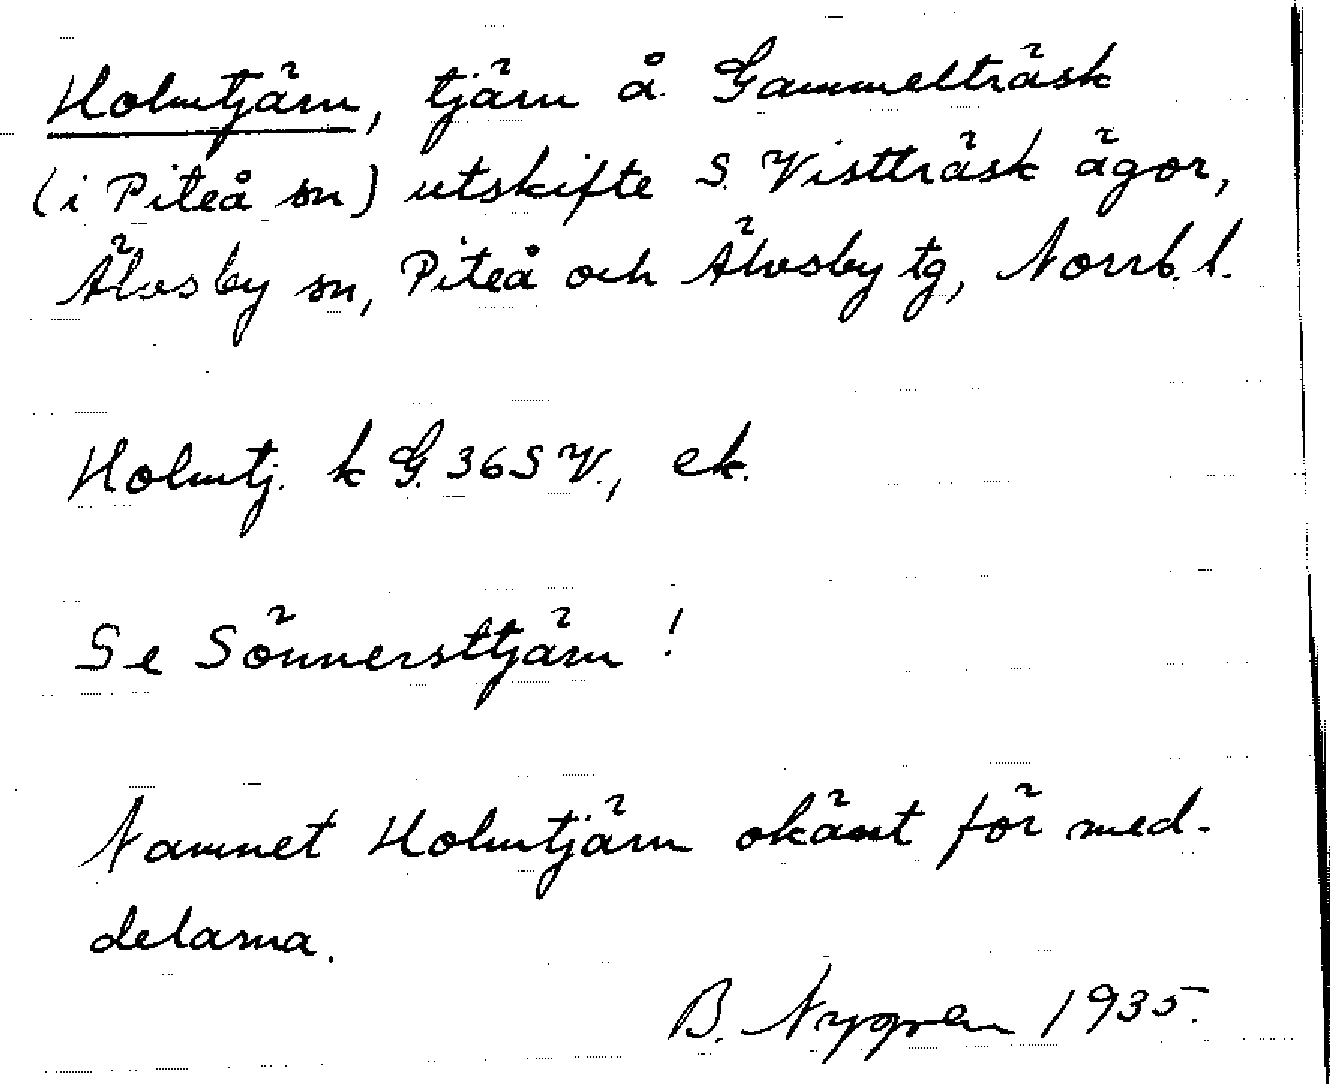 Holmtjärn, tjärn å Gammelträsk
(i Piteå sn) utskifte S. Vistträsk ägor,
Älvsby sn, Piteå och Älvsby tg, Norrb. l.
Holmtj. k G. 36 S V., ek.
Se Sönnersttjärn !
Namnet Holmtjärn okänt för med-
delarna.
B. Nygren 1935.